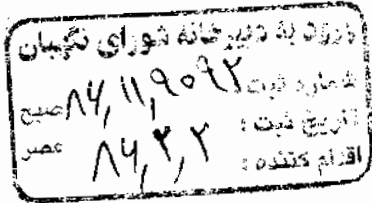 ورود به دبیرخانه شورای نگهبان
شماره ثبت: ۸۶,۱۱,۹۰۹۲ صبح
تاریخ ثبت: ۸۶,۲,۲ عصر
اقدام کننده: